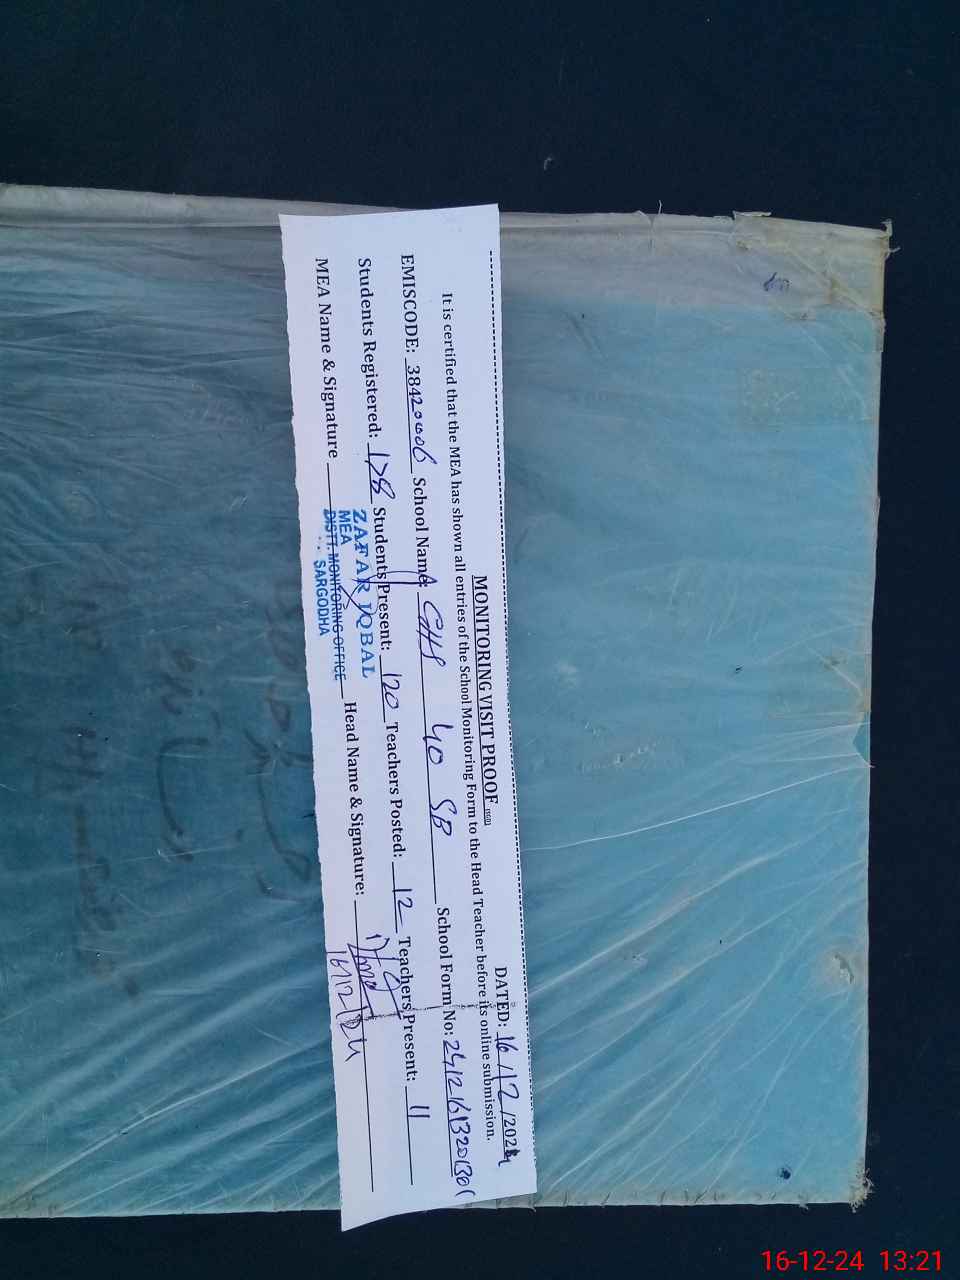 DATED: 16/12/2024
MONITORING VISIT PROOF
It is certified that the MEA has shown all entries of the School Monitoring Form to the Head Teacher before its online submission.
EMISCODE: 38420006 School Name: GHS 40 SB School Form No:
Students Registered: 178 Students Present: 120 Teachers Posted: 12 Teachers Present: 11
MEA Name & Signature Head Name & Signature:
ZAFAR IQBAL
MEA
DISTT. MONITORING OFFICE
SARGODHA
16/12/24
16-12-24 13:21